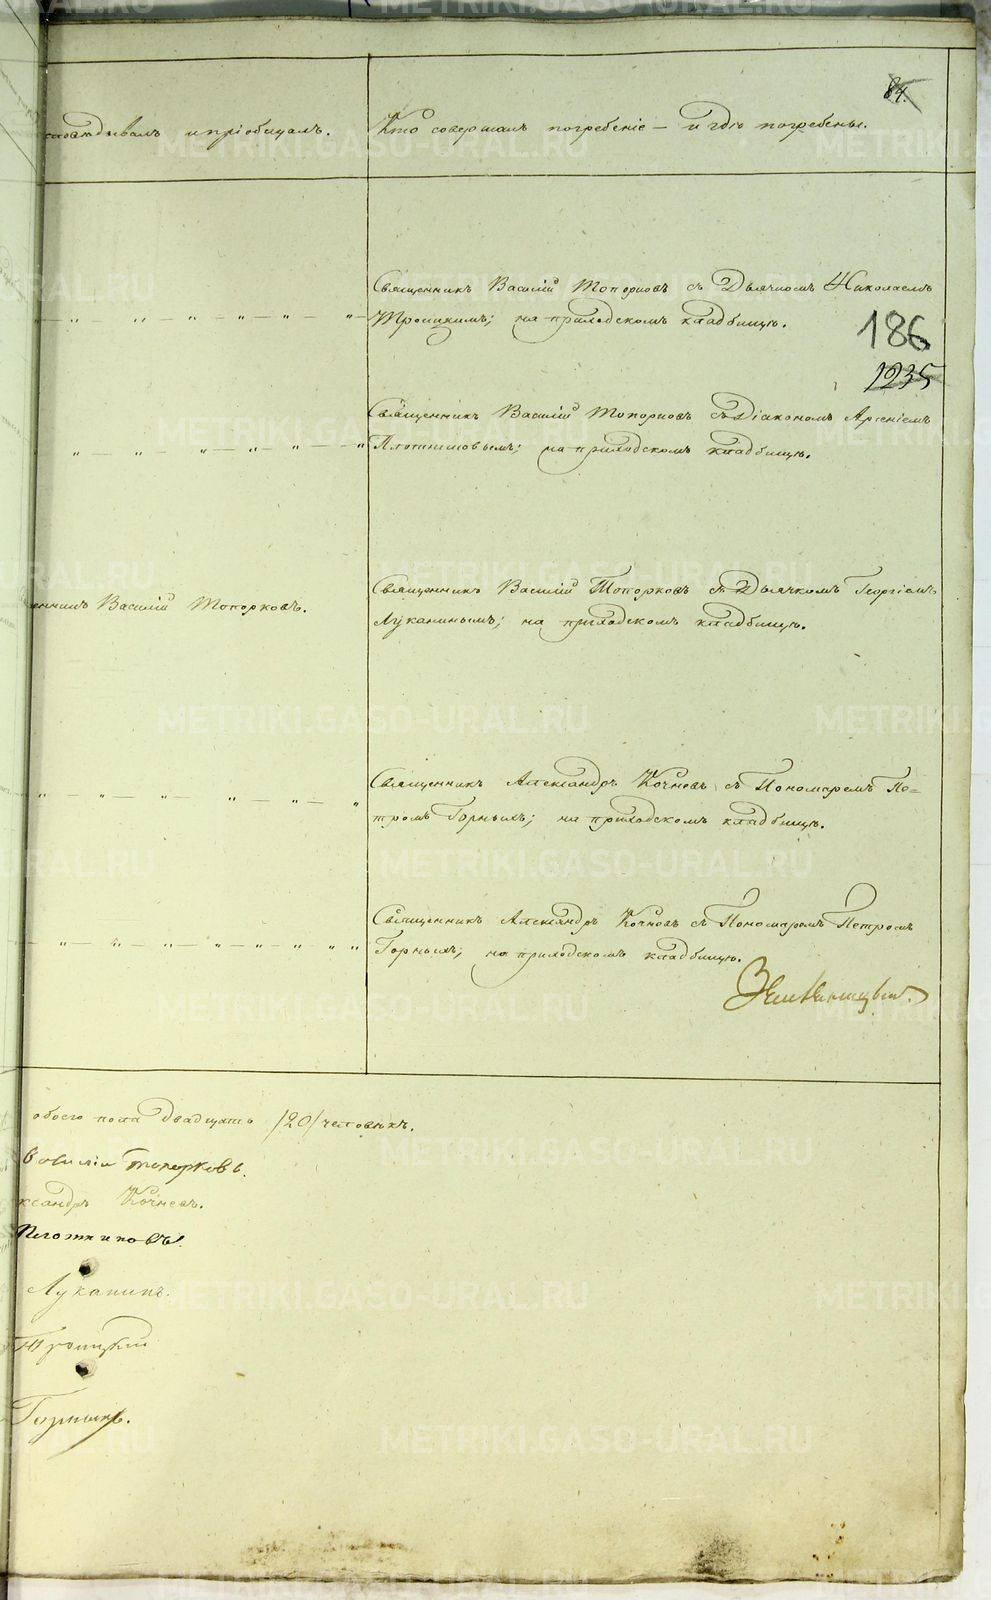 84.
исповѣдывалъ и пріобщалъ. Кто совершалъ погребеніе — и гдѣ погребены.
Священникъ Василій Топорковъ съ Дьячкомъ Николаемъ
Троицкимъ; на приходскомъ кладбищѣ.
186
1235
Священникъ Василій Топорковъ съ Діакономъ Арсеніемъ
Плотниковымъ; на приходскомъ кладбищѣ.
енникъ Василій Топорковъ.
Священникъ Василій Топорковъ съ Дьячкомъ Георгіемъ
Луканинымъ; на приходскомъ кладбищѣ.
Священникъ Александръ Кочневъ съ Пономаремъ Пе=
тромъ Горныхъ; на приходскомъ кладбищѣ.
Священникъ Александръ Кочневъ съ Пономаремъ Петромъ
Горныхъ; на приходскомъ кладбищѣ.
обоего пола двадцать /20/ человѣкъ.
Василій Топорковъ.
ксандръ Кочневъ.
Плотниковъ.
Луканинъ.
Троицкій
Горныхъ.
METRIKI.GASO-URAL.RU